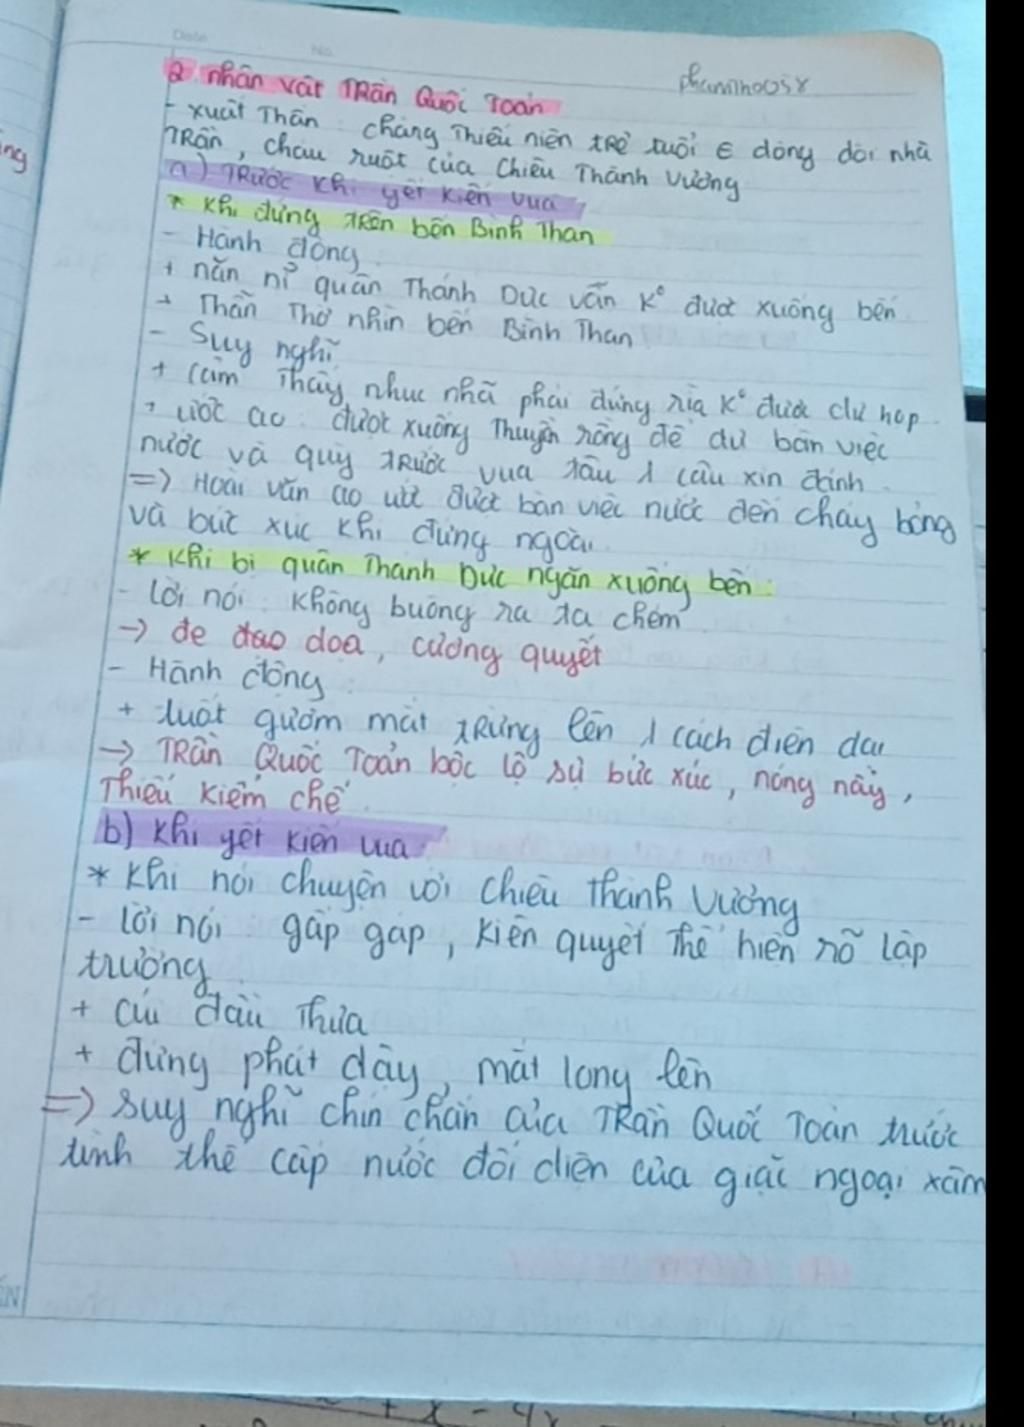 phanmhoo5x
2. nhân vật Trần Quốc Toản
- xuất Thân : chàng Thiếu niên trẻ tuổi ∈ dòng dõi nhà
Trần, cháu ruột của Chiêu Thành Vương
a) Trước khi yết kiến vua
* Khi đứng trên bến Bình Than
- Hành động :
+ năn nỉ quân Thánh Dực vẫn K° được xuống bến
+ Thẫn Thờ nhìn bến Bình Than
- Suy nghĩ
+ cảm Thấy nhục nhã phải đứng rìa K° được dự họp
+ ước ao : được xuống Thuyền rồng để dự bàn việc
nước và quỳ trước vua tâu 1 câu xin đánh
=> Hoài Văn ao ước được bàn việc nước đến cháy bỏng
và bức xúc khi đứng ngoài
* Khi bị quân Thánh Dực ngăn xuống bến :
- Lời nói : Không buông ra ta chém
-> đe doạ, cương quyết
- Hành động :
+ tuốt gươm mắt trừng lên 1 cách điên dại
-> Trần Quốc Toản bộc lộ sự bức xúc, nóng nảy,
Thiếu kiềm chế
b) Khi yết kiến vua
* Khi nói chuyện với Chiêu Thành Vương
- lời nói gấp gáp, kiên quyết Thể hiện rõ lập
trường
+ cúi đầu Thưa
+ đứng phắt dậy, mắt long lên
=> suy nghĩ chín chắn của Trần Quốc Toản trước
tình thế cấp nước đối diện của giặc ngoại xâm